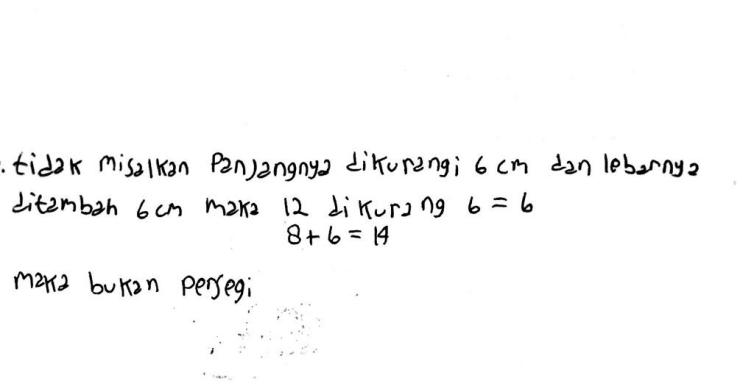 . tidak misalkan Panjangnya dikurangi 6 cm dan lebarnya
ditambah 6 cm maka 12 dikurang 6 = 6
8 + 6 = 14
maka bukan persegi